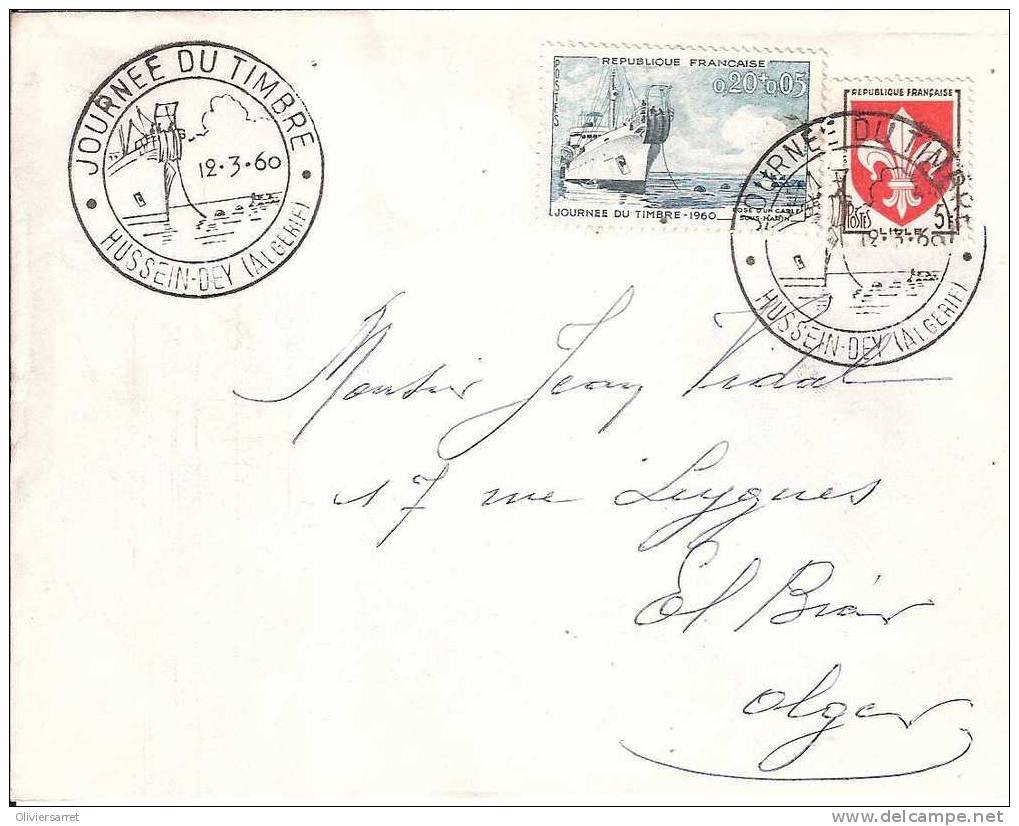 JOURNEE DU TIMBRE
12•3•60
HUSSEIN-DEY (ALGERIE)
REPUBLIQUE FRANÇAISE
POSTES
0,20+0,05
JOURNEE DU TIMBRE-1960
POSE D'UN CABLE
SOUS-MARIN
REPUBLIQUE FRANÇAISE
POSTES
5F
LILLE
JOURNEE DU TIMBRE
12•3•60
HUSSEIN-DEY (ALGERIE)
Monsieur Jean Vidal
17 rue Leygues
El Biar
Alger
Oliviersarret
delcampe.net